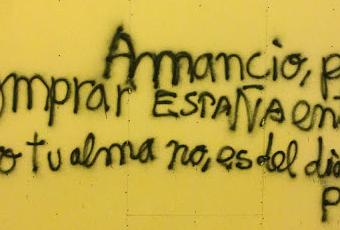 Amancio, p
omprar ESPAÑA en
o tu alma no, es del dia
p